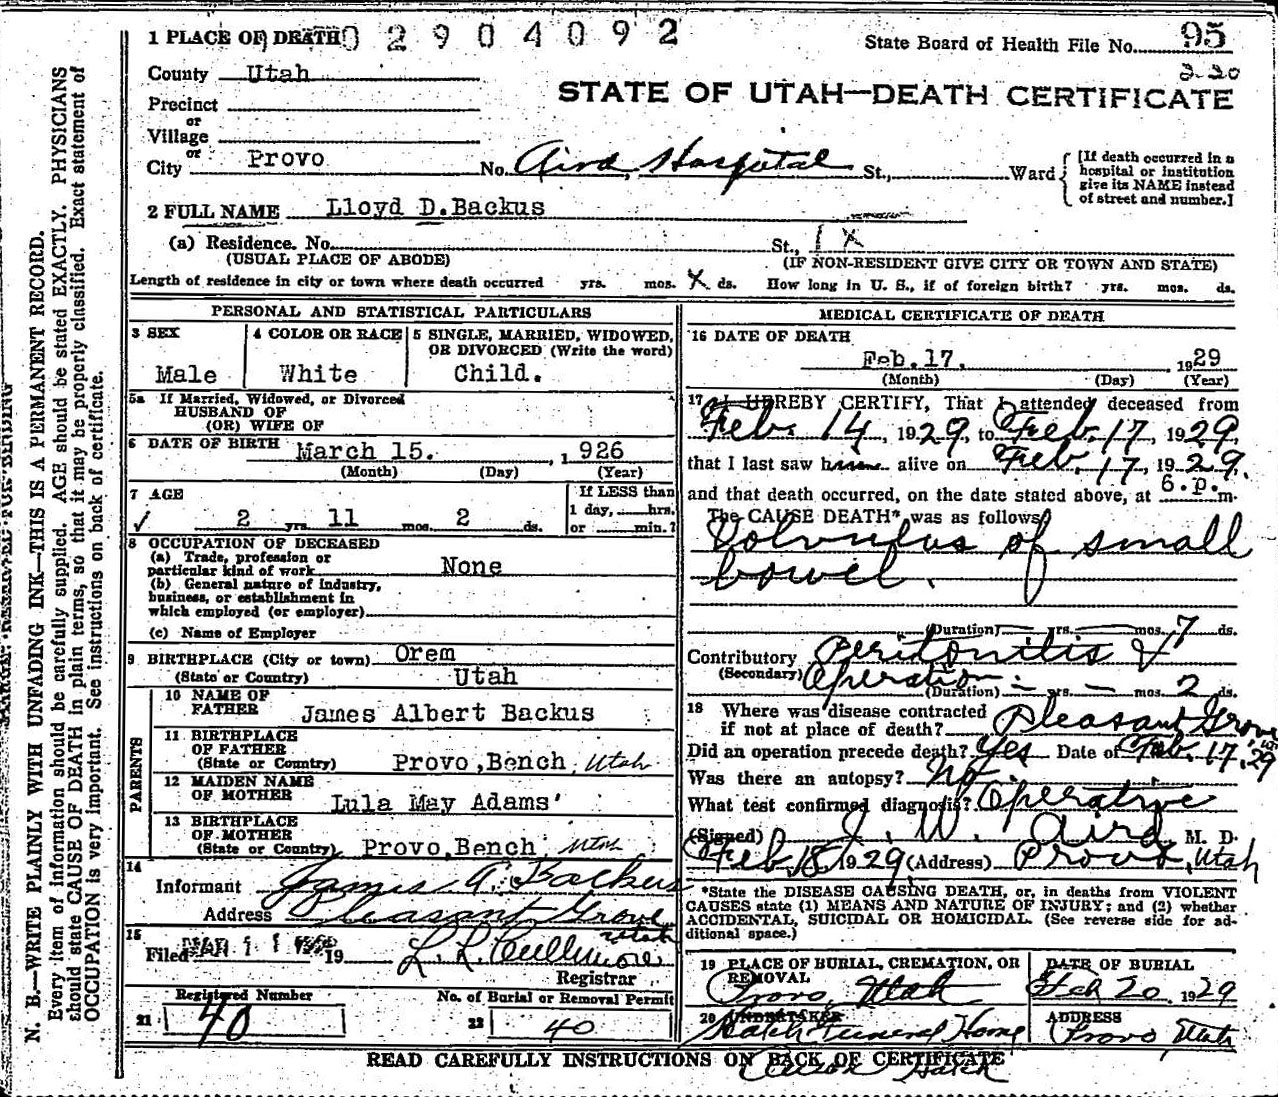 1 PLACE OF DEATH 02904092
State Board of Health File No. 95
County Utah
2-20
STATE OF UTAH—DEATH CERTIFICATE
Precinct
or
Village
or
City Provo No. Aird Hospital St., Ward
[If death occurred in a
hospital or institution
give its NAME instead
of street and number.]
2 FULL NAME Lloyd D.Backus
(a) Residence. No. St., X
(USUAL PLACE OF ABODE) (IF NON-RESIDENT GIVE CITY OR TOWN AND STATE)
Length of residence in city or town where death occurred yrs. mos. X ds. How long in U. S., if of foreign birth? yrs. mos. ds.
N. B.—WRITE PLAINLY WITH UNFADING INK—THIS IS A PERMANENT RECORD.
Every item of information should be carefully supplied. AGE should be stated EXACTLY. PHYSICIANS
should state CAUSE OF DEATH in plain terms, so that it may be properly classified. Exact statement of
OCCUPATION is very important. See instructions on back of certificate.
PERSONAL AND STATISTICAL PARTICULARS
3 SEX Male
4 COLOR OR RACE White
5 SINGLE, MARRIED, WIDOWED,
OR DIVORCED (Write the word)
Child.
5a If Married, Widowed, or Divorced
HUSBAND OF
(OR) WIFE OF
6 DATE OF BIRTH March 15. , 1 926
(Month) (Day) (Year)
7 AGE
✓ 2 yrs. 11 mos. 2 ds.
If LESS than
1 day, hrs.
or min.?
8 OCCUPATION OF DECEASED
(a) Trade, profession or
particular kind of work None
(b) General nature of industry,
business, or establishment in
which employed (or employer)
(c) Name of Employer
9 BIRTHPLACE (City or town) Orem
(State or Country) Utah
PARENTS
10 NAME OF
FATHER James Albert Backus
11 BIRTHPLACE
OF FATHER
(State or Country) Provo,Bench, Utah
12 MAIDEN NAME
OF MOTHER Lula May Adams'
13 BIRTHPLACE
OF MOTHER
(State or Country) Provo,Bench Utah
14
Informant James A. Backus
Address Pleasant Grove
Utah
15
Filed MAR 11 19 L. L. Cullimore
Registrar
Registered Number
21 40
No. of Burial or Removal Permit
22 40
MEDICAL CERTIFICATE OF DEATH
16 DATE OF DEATH
Feb.17. 1929
(Month) (Day) (Year)
17 I HEREBY CERTIFY, That I attended deceased from
Feb. 14, 1929, to Feb. 17, 1929,
that I last saw him alive on Feb. 17, 1929.
and that death occurred, on the date stated above, at 6.p. m.
The CAUSE DEATH* was as follows:
Volvulus of small
bowel.
(Duration) — yrs. — mos. 7 ds.
Contributory Peritonitis &
(Secondary) Operation
(Duration) — yrs. — mos. 2 ds.
18 Where was disease contracted
if not at place of death? Pleasant Grove
Did an operation precede death? Yes Date of Feb. 17, 29
Was there an autopsy? No.
What test confirmed diagnosis? Operative
(Signed) J. W. Aird M. D.
Feb 18 1929 (Address) Provo, Utah
*State the DISEASE CAUSING DEATH, or, in deaths from VIOLENT
CAUSES state (1) MEANS AND NATURE OF INJURY; and (2) whether
ACCIDENTAL, SUICIDAL OR HOMICIDAL. (See reverse side for ad-
ditional space.)
19 PLACE OF BURIAL, CREMATION, OR
REMOVAL
Provo, Utah
DATE OF BURIAL
Feb 20 1929
20 UNDERTAKER
Hatch Funeral Home
ADDRESS
Provo Utah
READ CAREFULLY INSTRUCTIONS ON BACK OF CERTIFICATE
Hatch